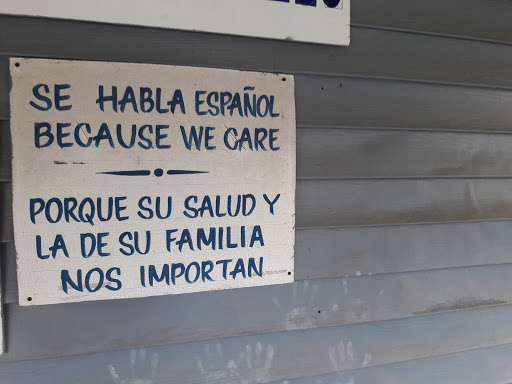 SE HABLA ESPAÑOL
BECAUSE WE CARE
PORQUE SU SALUD Y
LA DE SU FAMILIA
NOS IMPORTAN